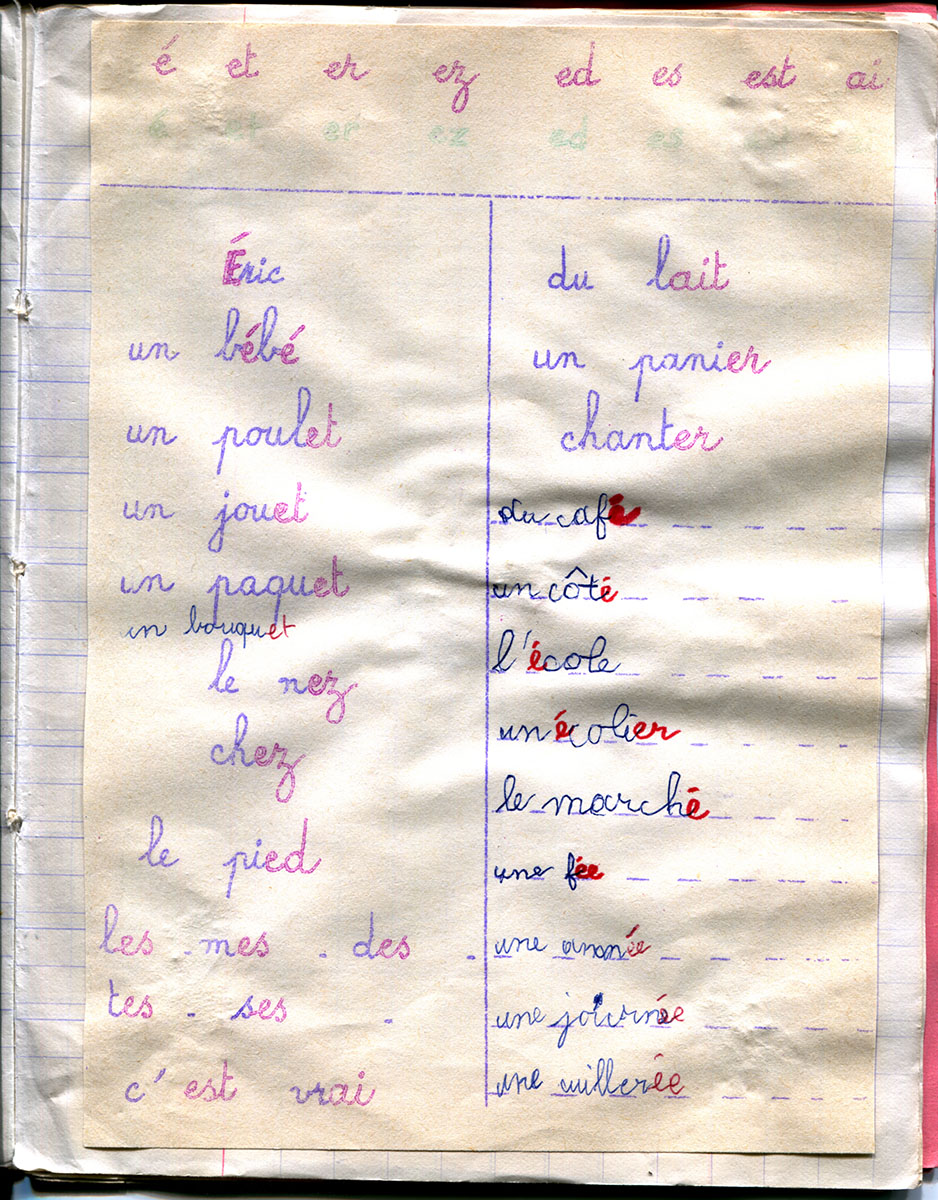 é et er ez ed es est ai
é et er ez ed es
Éric
un bébé
un poulet
un jouet
un paquet
un bouquet
le nez
chez
le pied
les . mes . des .
tes . ses .
c'est vrai
du lait
un panier
chanter
du café
un côté
l'école
un écolier
le marché
une fée
une année
une journée
une cuillerée